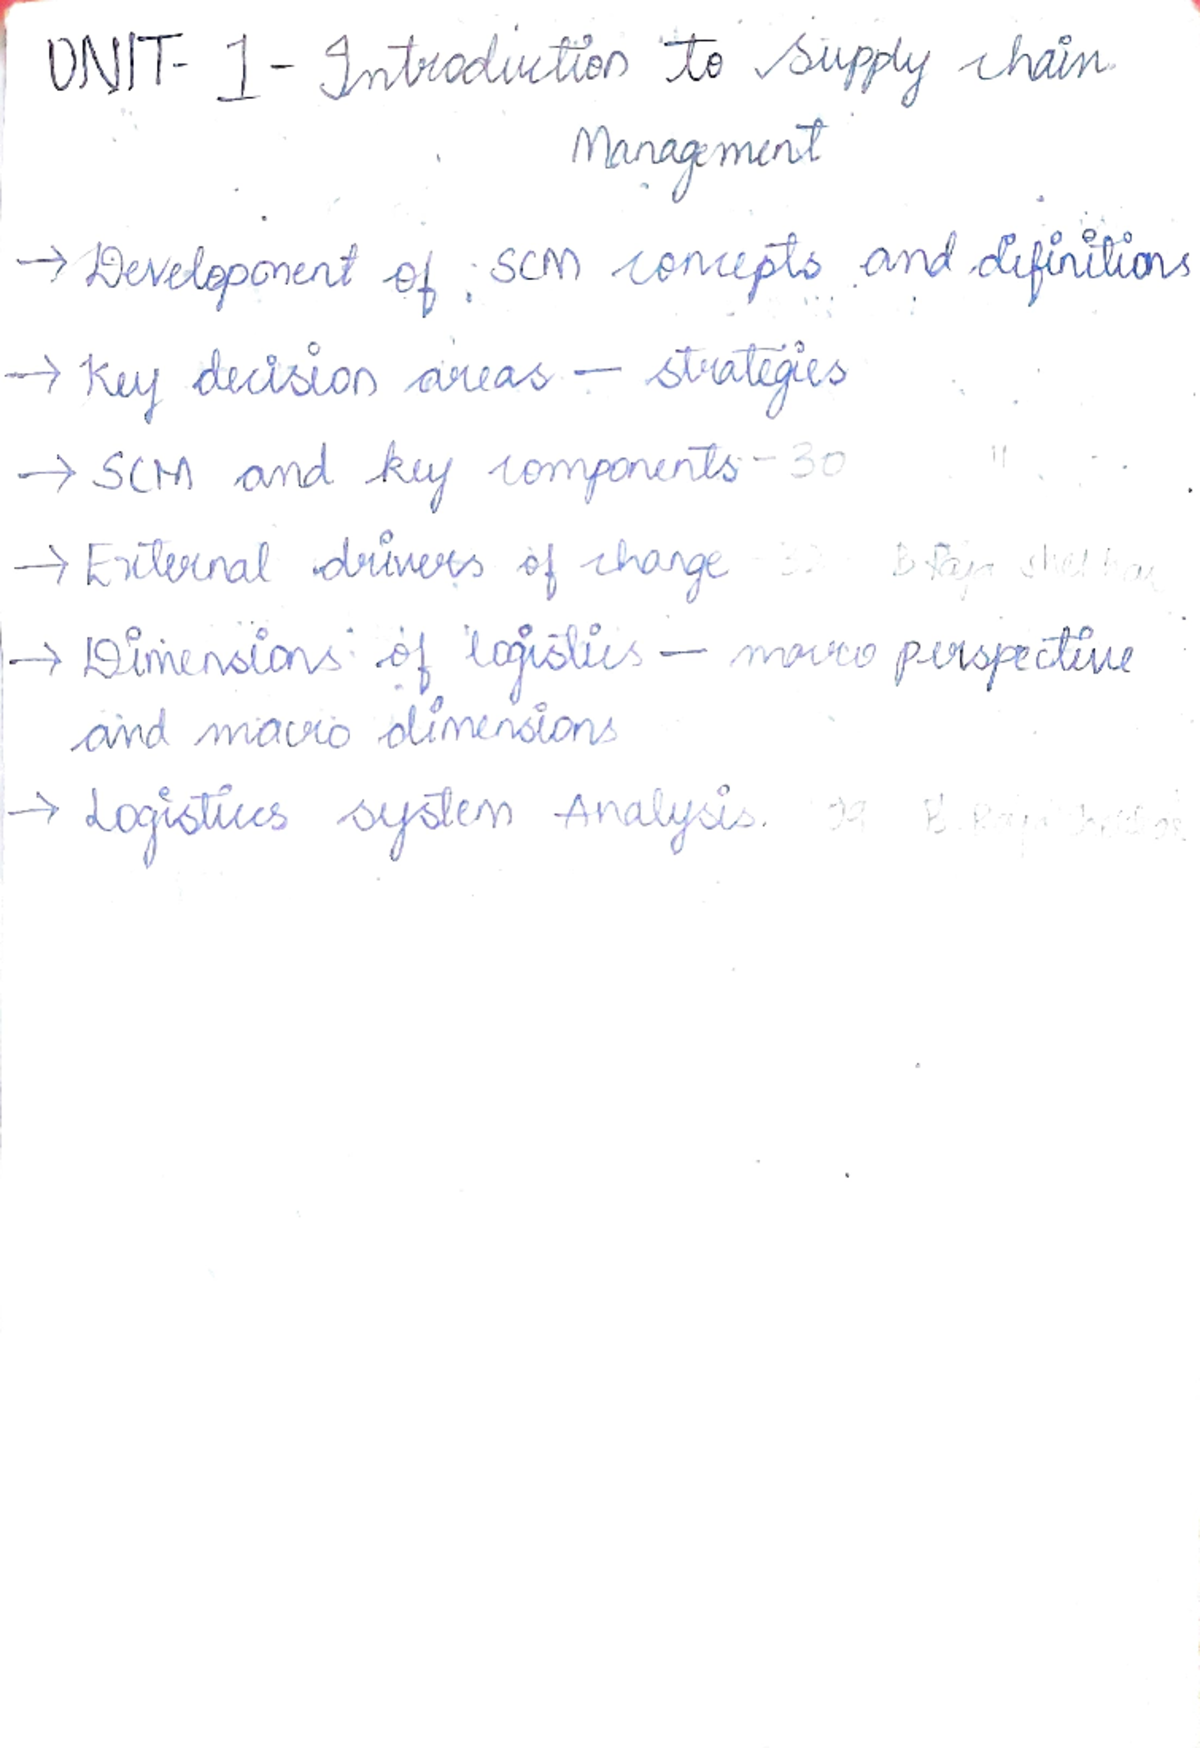 UNIT- 1 - Introduction to Supply chain
Management
→ Development of SCM concepts and definitions
→ Key decision areas — strategies
→ SCM and key components - 30 "
→ External drivers of change
→ Dimensions of logistics — macro perspective
and macro dimensions
→ Logistics system Analysis.